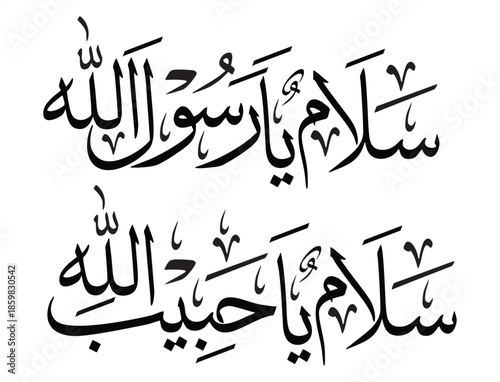 سَلَامٌ يَا رَسُوْلَ اللّٰه
سَلَامٌ يَا حَبِيْبَ اللّٰه
Adobe Stock | #1859830542